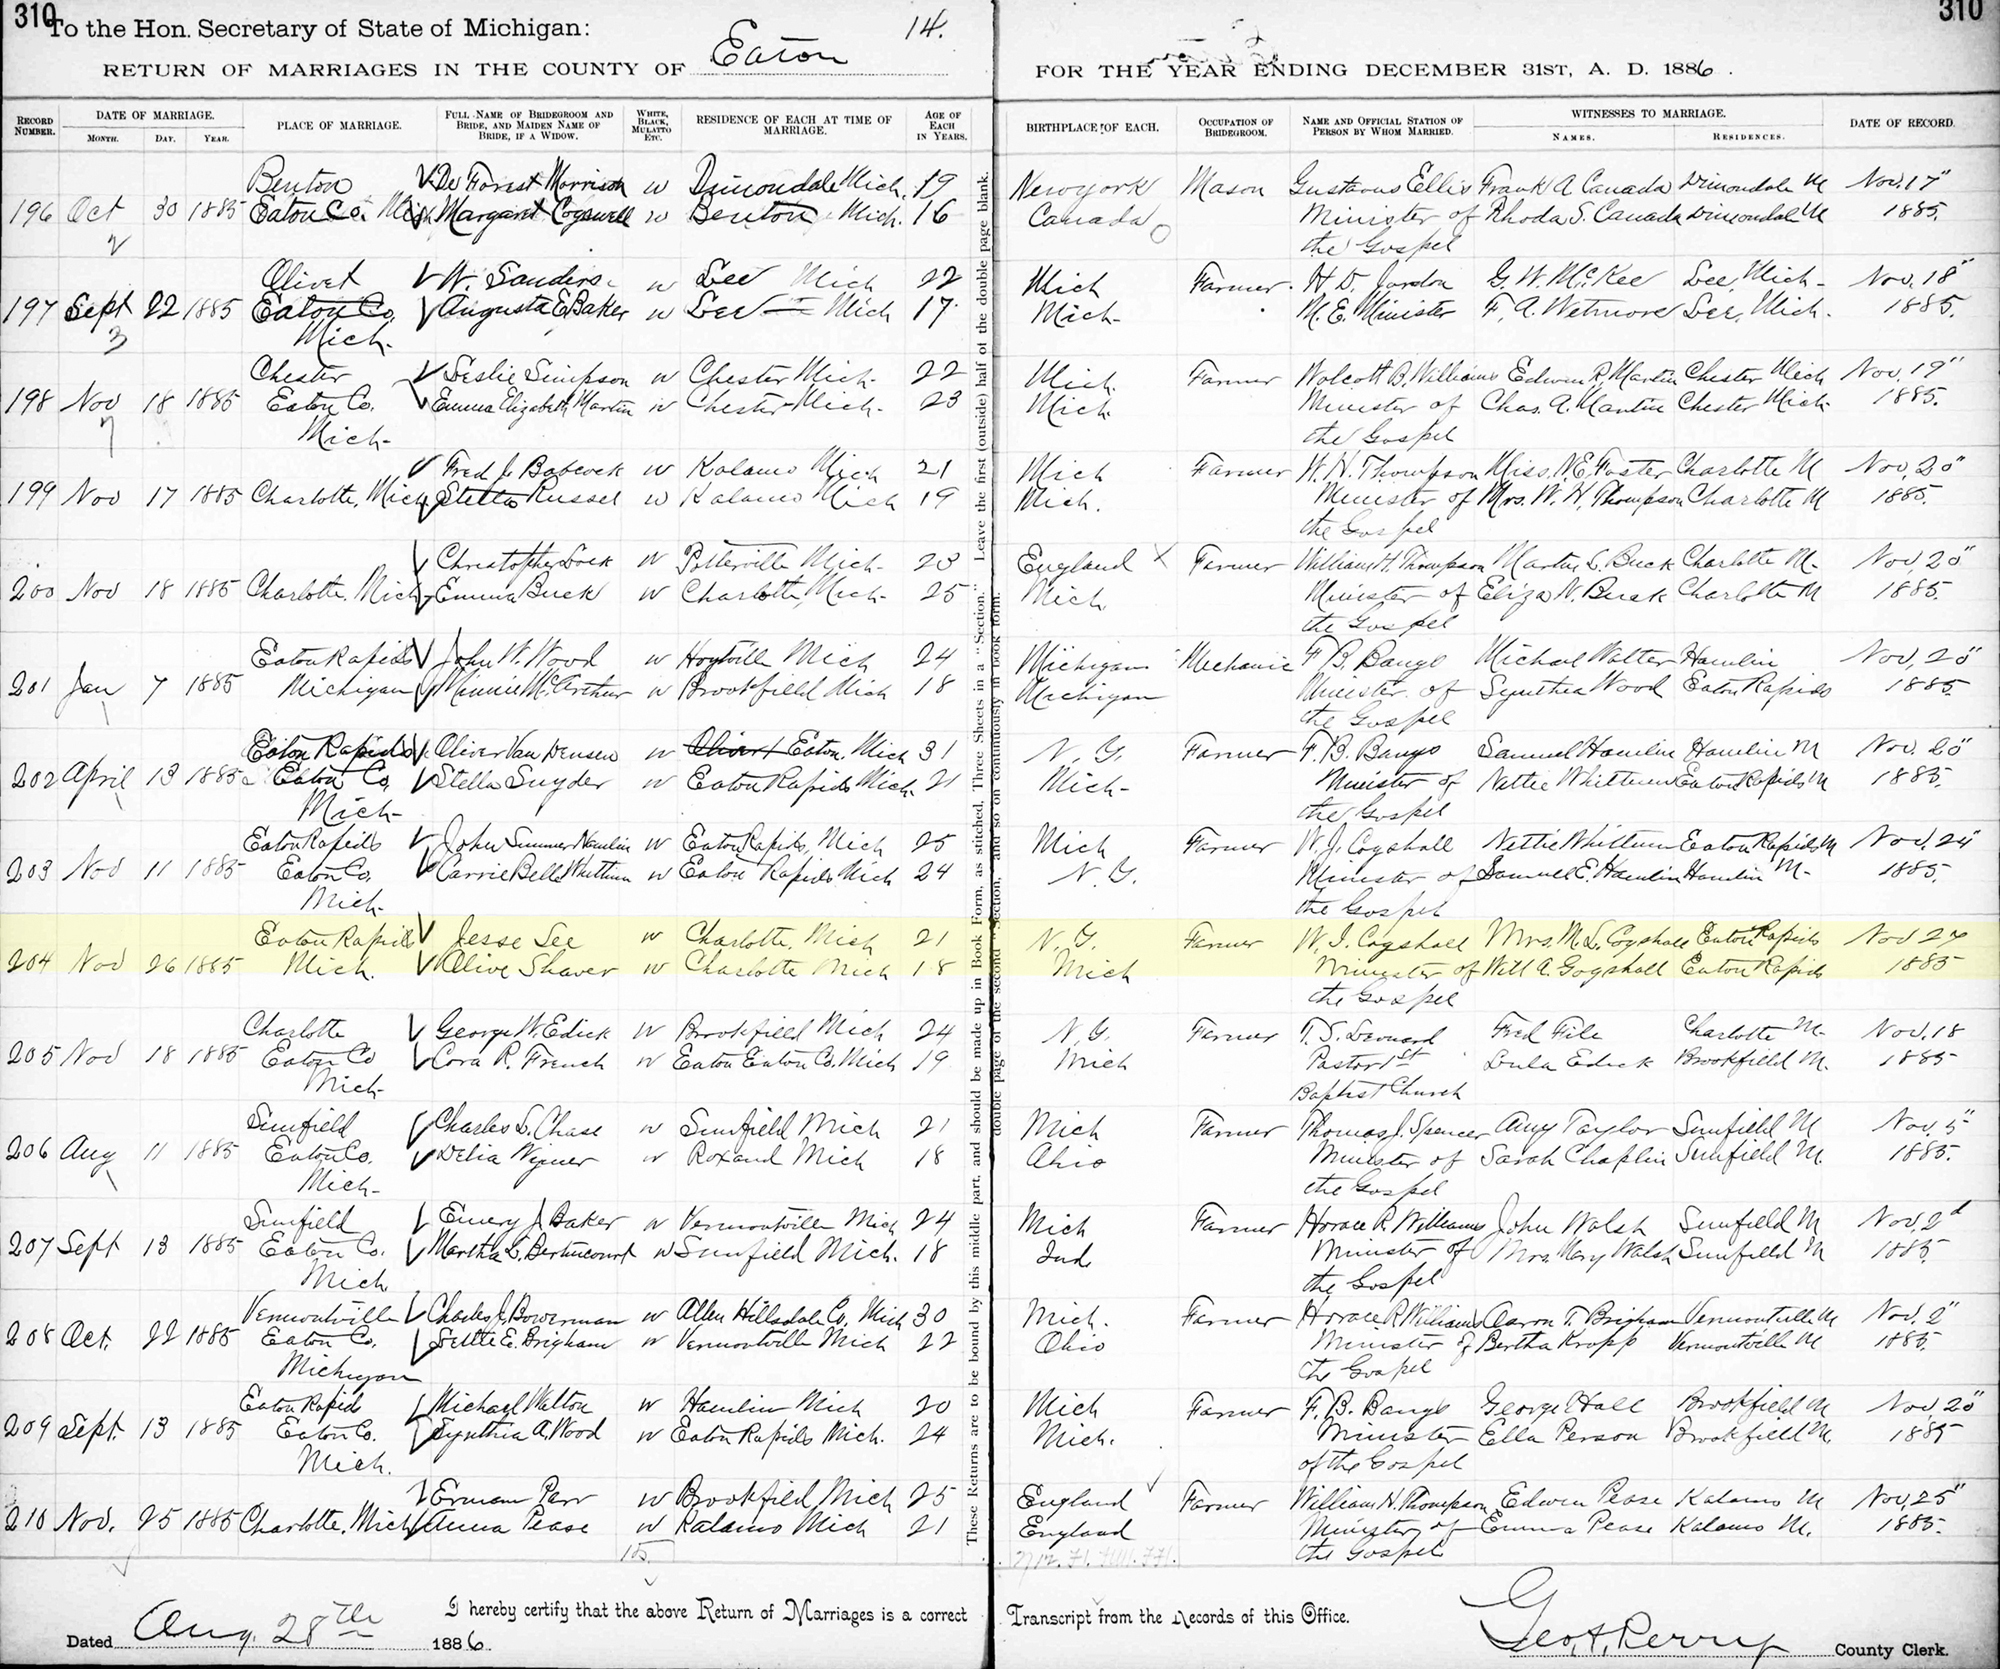 310
To the Hon. Secretary of State of Michigan:
14.
RETURN OF MARRIAGES IN THE COUNTY OF Eaton
RECORD NUMBER.
DATE OF MARRIAGE.
MONTH. DAY. YEAR.
PLACE OF MARRIAGE.
FULL NAME OF BRIDEGROOM AND BRIDE, AND MAIDEN NAME OF BRIDE, IF A WIDOW.
WHITE, BLACK, MULATTO ETC.
RESIDENCE OF EACH AT TIME OF MARRIAGE.
AGE OF EACH IN YEARS.
310
FOR THE YEAR ENDING DECEMBER 31ST, A. D. 1886.
BIRTHPLACE OF EACH.
OCCUPATION OF BRIDEGROOM.
NAME AND OFFICIAL STATION OF PERSON BY WHOM MARRIED.
WITNESSES TO MARRIAGE.
NAMES. RESIDENCES.
DATE OF RECORD.
Benton De Forest Morrison w Dimondale Mich. 19 New York Mason Gustavus Ellis Frank A Canada Dimondale M Nov. 17"
196 Oct 30 1885 Eaton Co. Mich Margaret Cogswell w Benton Mich. 16 Canada Minister of Rhoda S. Canada Dimondale M 1885.
the Gospel
Olivet W. Sanders w Lee Mich 22 Mich Farmer. H. D. Jordon G. W. McKee Lee, Mich- Nov. 18"
197 Sept 22 1885 Eaton Co. Augusta E Baker w Lee Mich 17 Mich- M. E. Minister F. A. Wetmore Lee, Mich. 1885.
Mich.
Chester Leslie Simpson w Chester Mich- 22 Mich. Farmer Wolcott B. Williams Edwin R. Martin Chester Mich Nov. 19"
198 Nov 18 1885 Eaton Co. Emma Elizabeth Martin w Chester Mich- 23 Mich. Minister of Chas. A. Martin Chester Mich 1885.
Mich- the Gospel
Fred J. Babcock w Kalamo Mich 21 Mich Farmer W. H. Thompson Miss. N. E. Foster Charlotte M Nov. 20"
199 Nov 17 1885 Charlotte, Mich Stella Russel w Kalamo Mich 19 Mich. Minister of Mrs. W. H. Thompson Charlotte M 1885.
the Gospel
Christopher w Potterville Mich- 23 England Farmer William H Thompson Buck Charlotte M- Nov. 20"
200 Nov 18 1885 Charlotte, Mich Emma Buck w Charlotte, Mich- 25 Mich, Minister of Eliza N. Buck Charlotte M 1885.
the Gospel
Eaton Rapids John W. Wood w Hoytville Mich 24 Michigan Mechanic F. B. Bangs Michael Walter Hamlin Nov. 20"
201 Jan 7 1885 Michigan Minnie McArthur w Brookfield Mich 18 Michigan Minister of Synthia Wood Eaton Rapids 1885.
the Gospel
Eaton Rapids Oliver Van Deusen w Eaton, Mich 31 N. Y. Farmer F. B. Bangs Samuel Hamlin Hamlin M Nov. 20"
202 April 13 1885 Eaton Co. Stella Snyder w Eaton Rapids Mich. 21 Mich- Minister of Nettie Whittum Eaton Rapids M 1885.
Mich- the Gospel
Eaton Rapids John Sumner Hamlin w Eaton Rapids, Mich 25 Mich Farmer W. J. Cogshall Nettie Whittum Eaton Rapids M Nov. 24"
203 Nov 11 1885 Eaton Co. Carrie Belle Whittum w Eaton Rapids Mich 24 N. Y. Minister of Samuel E. Hamlin Hamlin M- 1885.
Mich- the Gospel
Eaton Rapids Jesse Lee w Charlotte, Mich 21 N. Y. Farmer W. I. Cogshall Mrs. M. L. Cogshall Eaton Rapids Nov 27
204 Nov 26 1885 Mich. Olive Shaver w Charlotte Mich 18 Mich Minister of Will A. Gogshall Eaton Rapids 1885
the Gospel
Charlotte George W. Edick w Brookfield Mich 24 N. Y. Farmer T. S. Leonard Fred File Charlotte M- Nov. 18
205 Nov 18 1885 Eaton Co Cora R. French w Eaton Eaton Co. Mich 19 Mich Pastor 1st Lula Edick Brookfield M. 1885
Mich- Baptist Church
Sunfield Charles L. Chase w Sunfield Mich 21 Mich Farmer Thomas J. Spencer Amy Taylor Sunfield M Nov. 5"
206 Aug 11 1885 Eaton Co. Delia w Roxand Mich 18 Ohio Minister of Sarah Chaplin Sunfield M. 1885.
Mich- the Gospel
Sunfield Emery J. Baker w Vermontville Mich 24 Mich Farmer Horace R. Williams John Walsh Sunfield M Nov. 2d
207 Sept 13 1885 Eaton Co. Martha L. w Sunfield Mich. 18 Ind. Minister of Mrs. Mary Walsh Sunfield M 1885.
Mich the Gospel
Vermontville Charles J. Bowerman w Allen Hillsdale Co. Mich 30 Mich. Farmer Horace R Williams Aaron T. Brigham Vermontville M Nov. 2"
208 Oct. 22 1885 Eaton Co. E. Brigham w Vermontville Mich 22 Ohio Minister of Bertha Kropp Vermontville M 1885.
Michigan the Gospel
Eaton Rapids Michael Walton w Hamlin Mich 20 Mich Farmer F. B. Bangs George Hall Brookfield M Nov. 20"
209 Sept. 13 1885 Eaton Co. Synthia A. Wood w Eaton Rapids Mich. 24 Mich. Minister Ella Person Brookfield M. 1885
Mich. of the Gospel
Erman Parr w Brookfield Mich 25 England Farmer William H. Thompson Edwin Pease Kalamo M Nov. 25"
210 Nov. 25 1885 Charlotte, Mich Anna Pease w Kalamo Mich 21 England Minister of Emma Pease Kalamo M. 1885.
the Gospel
These Returns are to be bound by this middle part, and should be made up in Book Form, as stitched, Three Sheets in a "Section." Leave the first (outside) half of the double page blank.
double page of the second Section, and so on commonly in book form.
I hereby certify that the above Return of Marriages is a correct Transcript from the Records of this Office.
Dated Aug. 28th 1886.
Geo. A. Perry County Clerk.